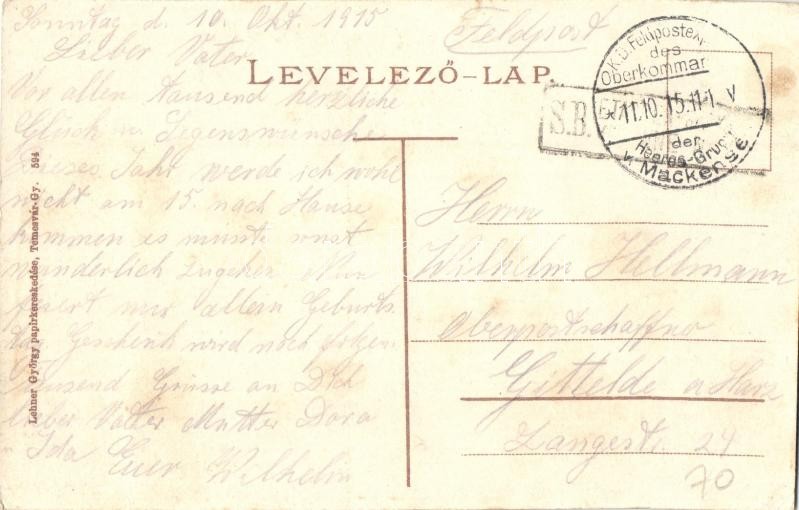 Sonntag d. 10. Okt. 1915
Feldpost
Lieber Vater
LEVELEZŐ-LAP.
Vor allen tausend herzliche
Glück u. Segenswünsche
dieses Jahr werde ich wohl
nicht am 15. nach Hause
kommen es müsste sonst
wunderlich zugehen. Nun
feiert nur allein Geburts
tag Geschenk wird noch folgen
Tausend Grüsse an Dich
lieber Vater Mutter Dora
Ida Euer Wilhelm
K.D. Feldpostexp.
des
Oberkommar
11.10.15.11-1 V
der
Heeres-Grupp
v. Mackense
S.B.
Herrn
Wilhelm Hellmann
Oberpostschaffner
Gittelde a Harz
Langestr. 24
70
Lehner György papirkereskedése, Temesvár-Gy. 594